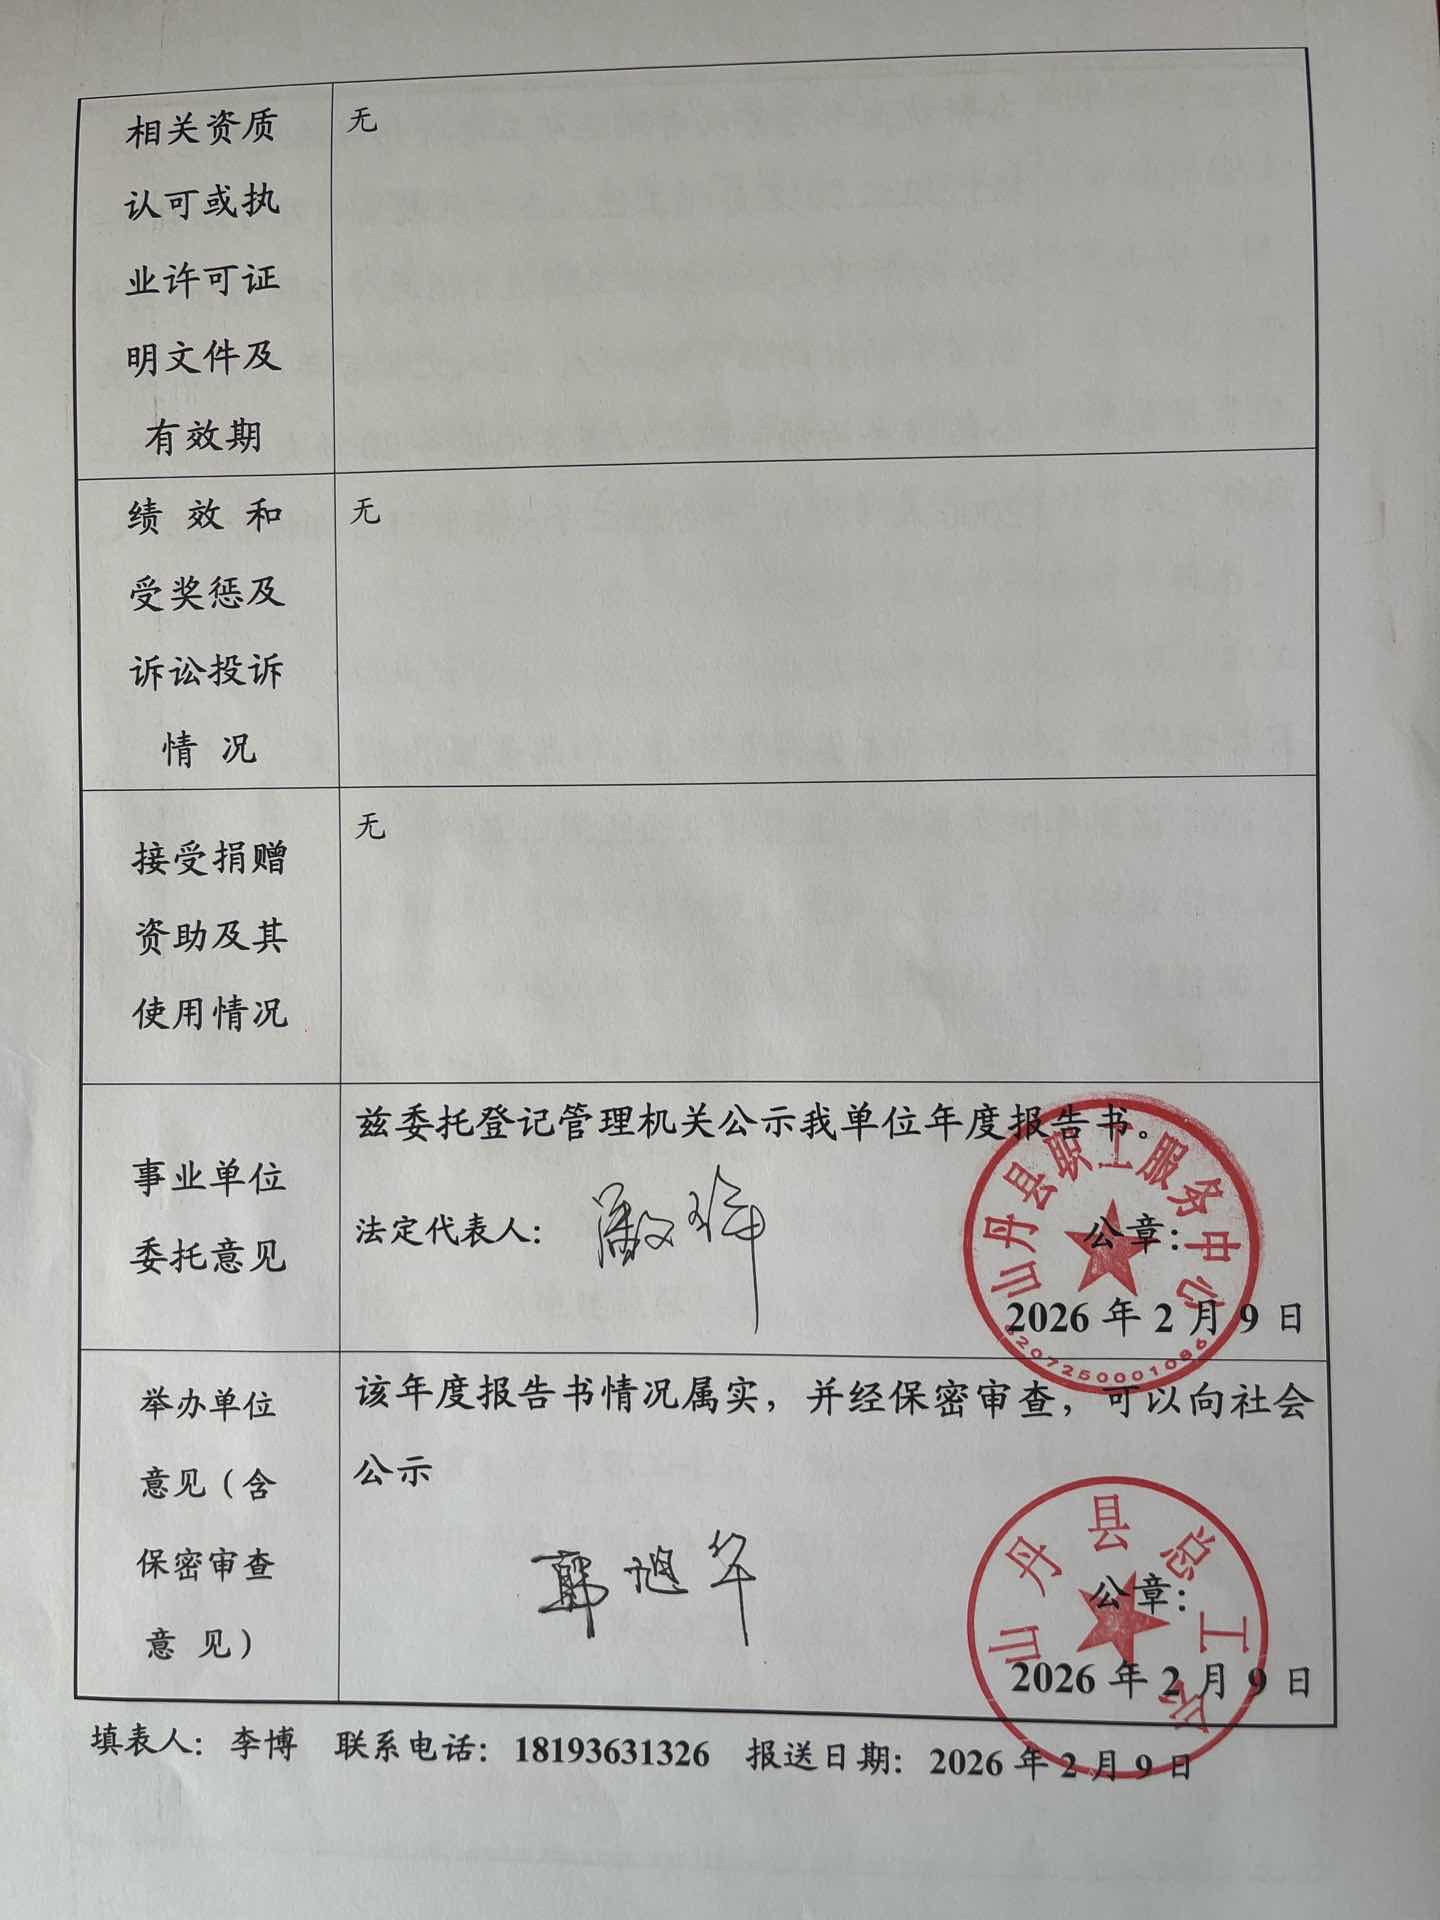 相关资质
认可或执
业许可证
明文件及
有效期
无
绩 效 和
受奖惩及
诉讼投诉
情 况
无
接受捐赠
资助及其
使用情况
无
事业单位
委托意见
兹委托登记管理机关公示我单位年度报告书。
法定代表人：
公章：
2026 年 2 月 9 日
山丹县职工服务中心
举办单位
意见（含
保密审查
意 见）
该年度报告书情况属实，并经保密审查，可以向社会
公示
韩旭年
公章：
2026 年 2 月 9 日
山丹县总工会
填表人：李博 联系电话：18193631326 报送日期：2026 年 2 月 9 日